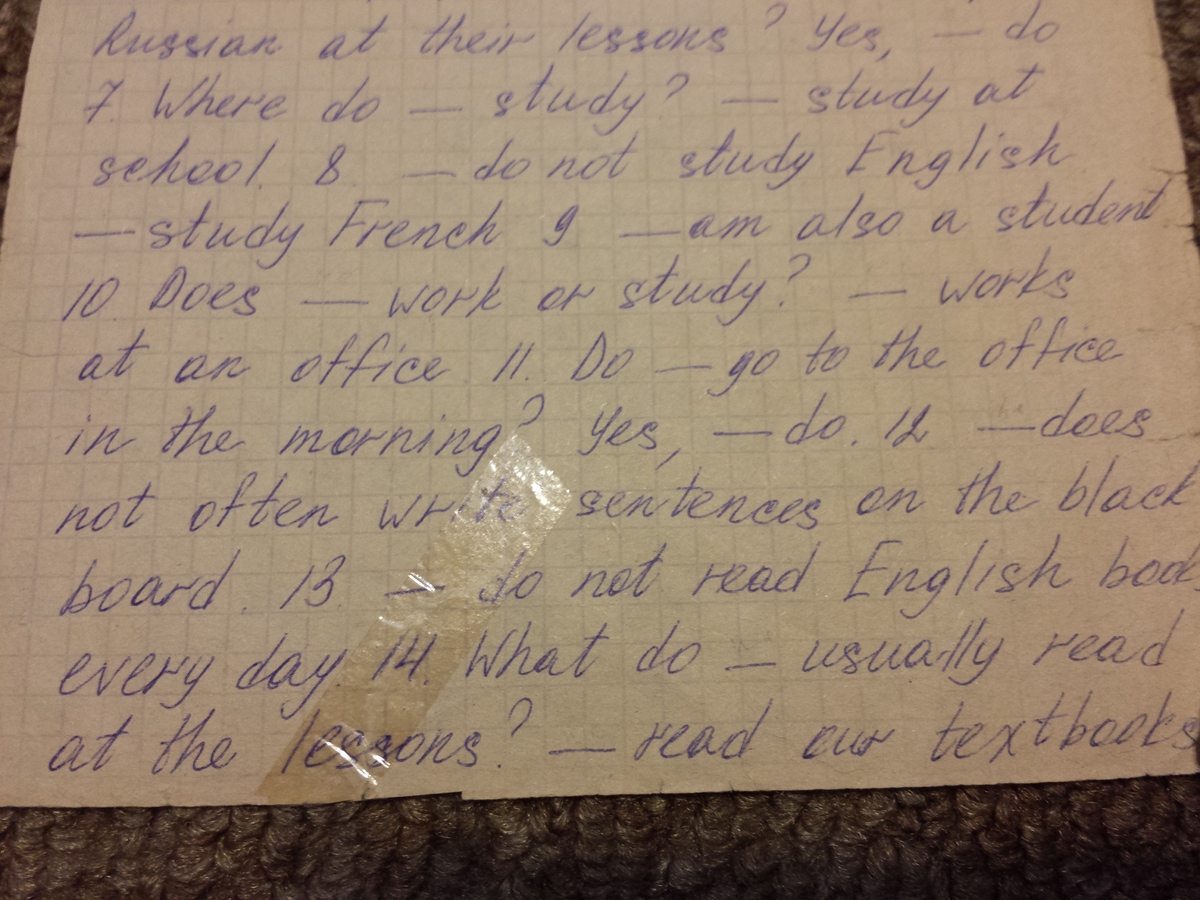 Russian at their lessons? Yes, — do
7. Where do — study? — study at
school. 8. — do not study English
— study French 9 — am also a student
10. Does — work or study? — works
at an office. 11. Do — go to the office
in the morning? Yes, — do. 12 — does
not often write sentences on the black
board. 13. — do not read English book
every day. 14. What do — usually read
at the lessons? — read our textbooks